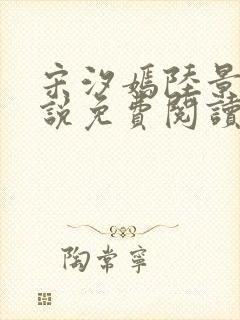 宋汐嫣陸景
說免費閱讀
陶常寧